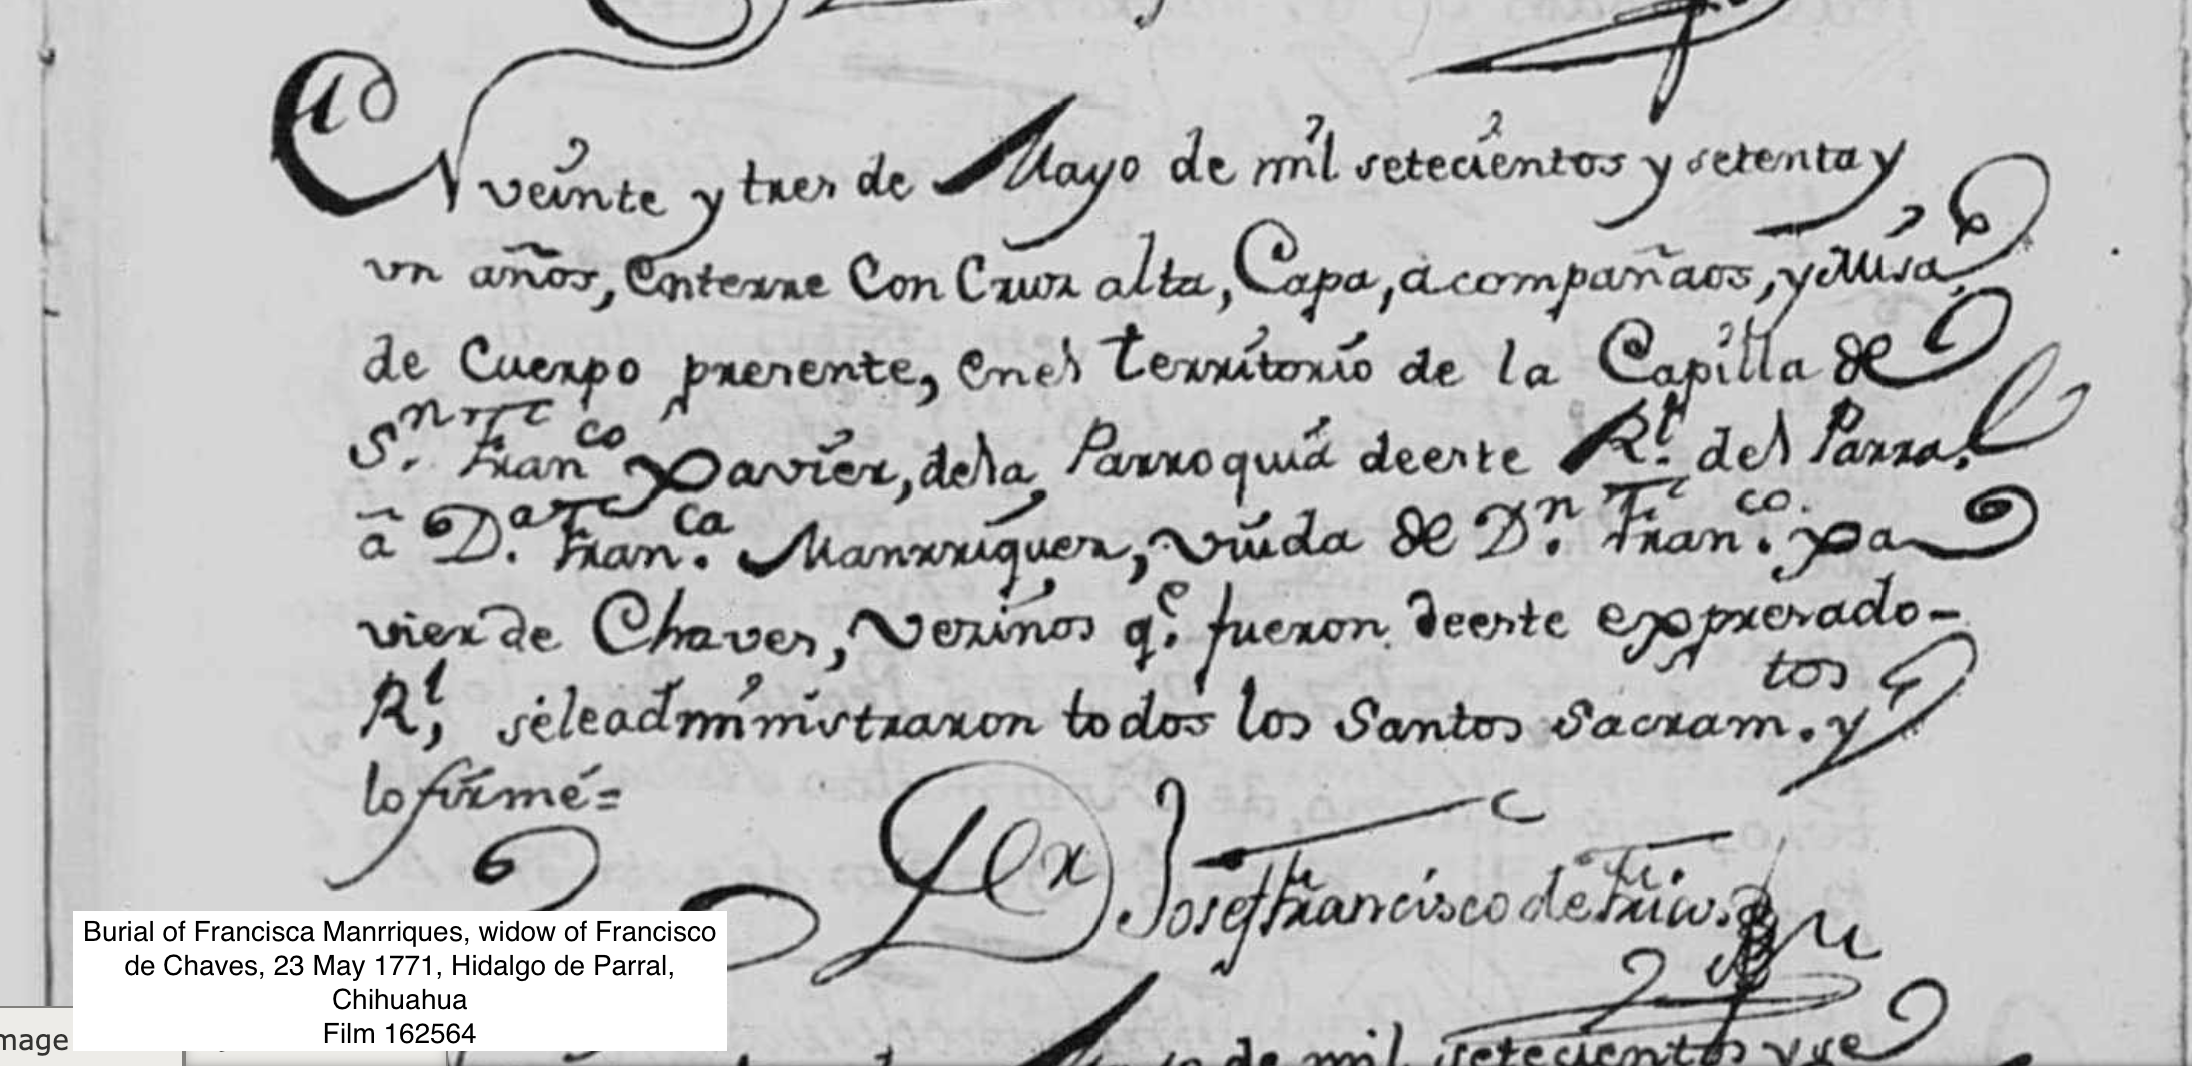 En veinte y tres de Mayo de mil setecientos y setenta y
vn años, Enterre Con Cruz alta, Capa, acompañaos, y Misa
de Cuerpo presente, en el territorio de la Capilla de
Sn. Franco. Xavier, de la Parroquia de este Rl. del Parral
â Da. Franca. Manrriquez, viuda de Dn. Franco. Xa
vier de Chaves, Vezinos qe. fueron de este expresado-
Rl, se le administraron todos los Santos Sacramtos. y
lo firmé=
Josef Francisco de
de mil setecientos y se
Burial of Francisca Manrriques, widow of Francisco
de Chaves, 23 May 1771, Hidalgo de Parral,
Chihuahua
Film 162564
mage